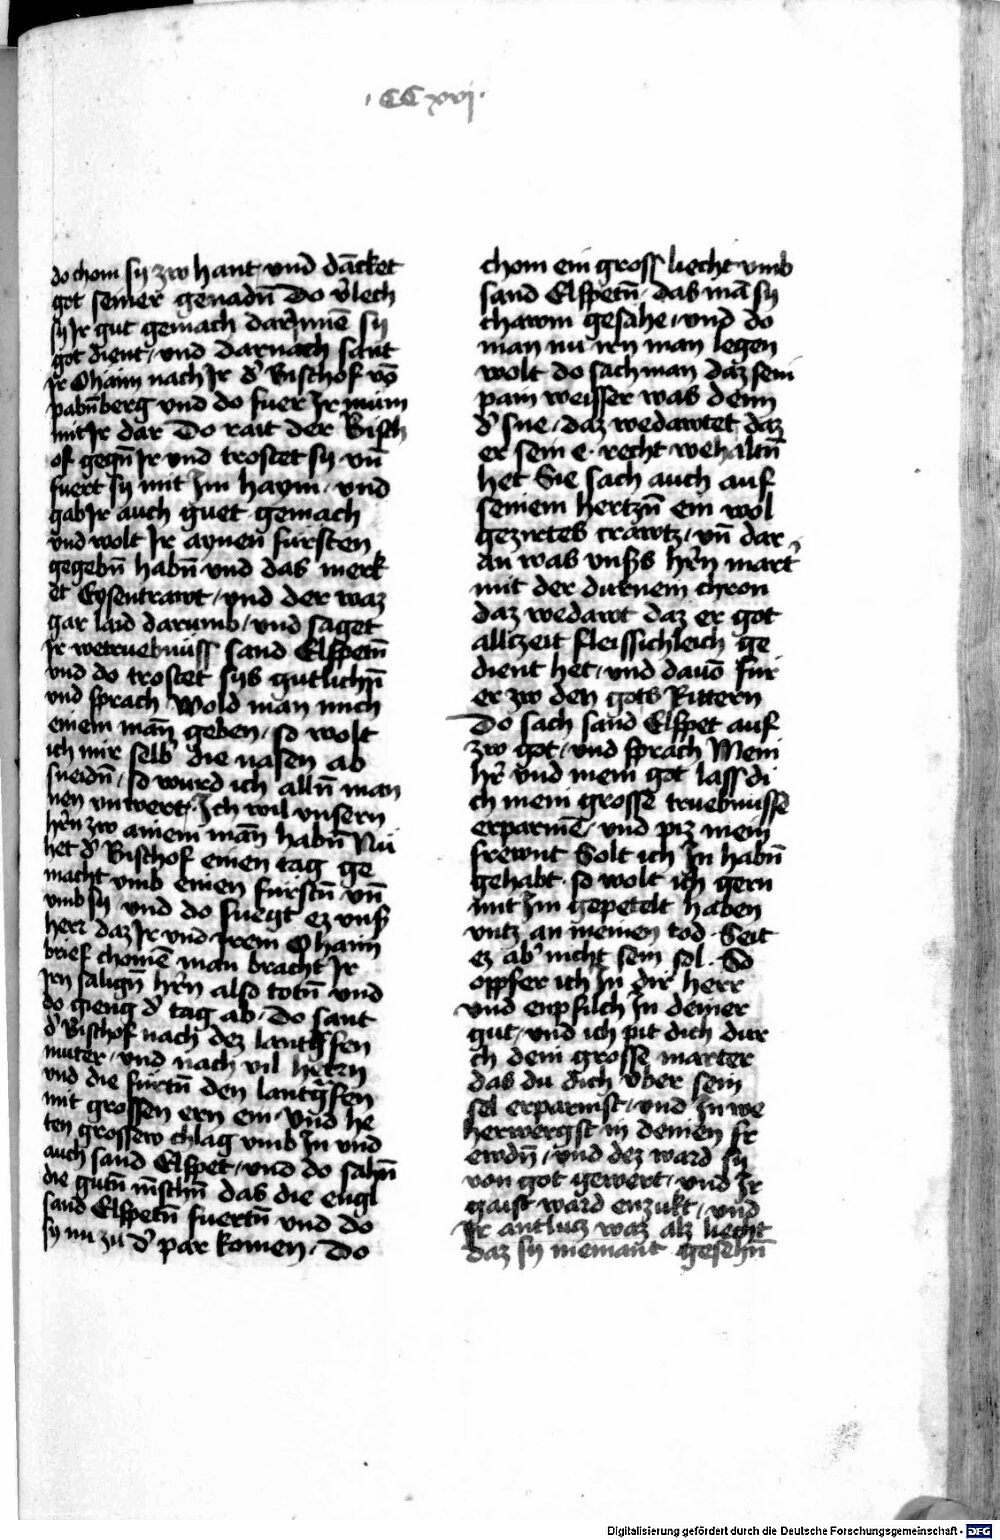 · CC xvj ·
do chom sy zw hant und dācket
got seiner genadn̄ Do v̾lech
sy Jr gut gemach dar Jnnē sy
got dient / und darnach sant
Jr Ohaim nach Jr d̾ Bischof vō
pabn̄berg und do fuer Jr mum
mit Jr dar Do rait der Bisch
of gegn̄ Jr und trostet sy vn̄
fuert sy mit Jm haym / und
gab Jr auch guet gemach
und wolt Jr aynen fursten
gegebn̄ habn̄ und das merk
et Eysentrawt / und der waz
gar laid darumb / und saget
Jr wetruebnüss sand Elspetn̄
und do trostet sys gutlichn̄
und sprach Wold man mich
einem man̄ geben / so wolt
ich mir selb̾ die nasen ab
sneidn̄ / so wurd ich alln̄ man
nen unwert / Ich wil unsern
hr̄n zw ainem man̄ habn̄ Nu
het d̾ Bischof einen tag ge
macht umb einen fürstn̄ vn̄
umb sy und do fuegt ez uns̾
herr daz Jr und Jrem Ohaim
brief chomē man bracht Jr
Jrn salign̄ hr̄n also totn̄ und
do gieng d̾ tag ab / Do sant
d̾ Bischof nach dez lantg̾fen
muter / und nach vil herrn
und die fürtn̄ den lantg̾fen
mit grossen ern ein / Und he
ten grossew chlag umb Jn und
auch sand Elspet / und do sahn̄
die gutn̄ mēschn̄ das die engl
sand Elspetn̄ fuertn̄ und do
sy nu zu d̾ par komen / Do
chom ein gross liecht umb
sand Elspetn̄ / das mā sy
chawm gesahe / und do
man nu irn man legen
wolt do sach man daz sein
pain weisser was denn
d̾ sne / daz wedawtet daz
er sein e · recht wehaltn̄
het Sie sach auch auf
seinem hertzn̄ ein wol
gezirtes crawtz / vn̄ dar
an was uns̾s hr̄n mart̾
mit der durnem chron
daz wedawt daz er got
allzeit fleissichleich ge
dient het / und davō fur
er zw den gots Rittern
Do sach sand Elspet auf
zw got / und sprach Mein
hr̄ und mein got lass di
ch mein grosse truebnusse
erparmē / und piz mein
frewnt Solt ich Jn habn̄
gehabt · so wolt ich gern
mit Jm gepetelt haben
untz an meinen tod · Seit
ez ab̾ nicht sein sol · So
opfer ich Jn dir herr
und enpfilch Jn deiner
gut / und ich pit dich dur
ch dein grosse marter
das du dich über sein
sel erparmst / und Jn we
herwergst in deinen fr
ewdn̄ / und dez ward sy
von got gewert / und Jr
gaist ward enzukt / und
Jr antlutz waz alz liecht
daz sy niemant gesehn̄
Digitalisierung gefördert durch die Deutsche Forschungsgemeinschaft - DFG